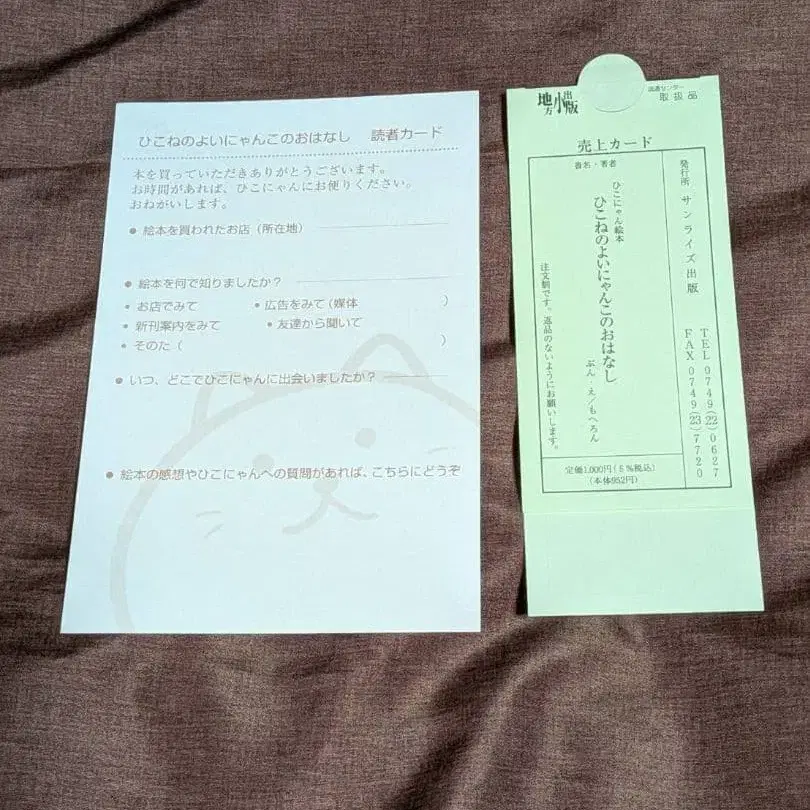 ひこねのよいにゃんこのおはなし 読者カード
本を買っていただきありがとうございます。
お時間があれば、ひこにゃんにお便りください。
おねがいします。
● 絵本を買われたお店（所在地）
● 絵本を何で知りましたか？
• お店でみて • 広告をみて（媒体 ）
• 新刊案内をみて • 友達から聞いて
• そのた（ ）
● いつ、どこでひこにゃんに出会いましたか？
● 絵本の感想やひこにゃんへの質問があれば、こちらにどうぞ
地方小出版
流通センター
取扱品
売上カード
発行所 サンライズ出版
TEL 0749(22)0627
FAX 0749(23)7720
書名・著者
ひこにゃん絵本
ひこねのよいにゃんこのおはなし
ぶん・え／もへろん
注文制です。返品のないようにお願いします。
定価1,000円（5％税込）
（本体952円）